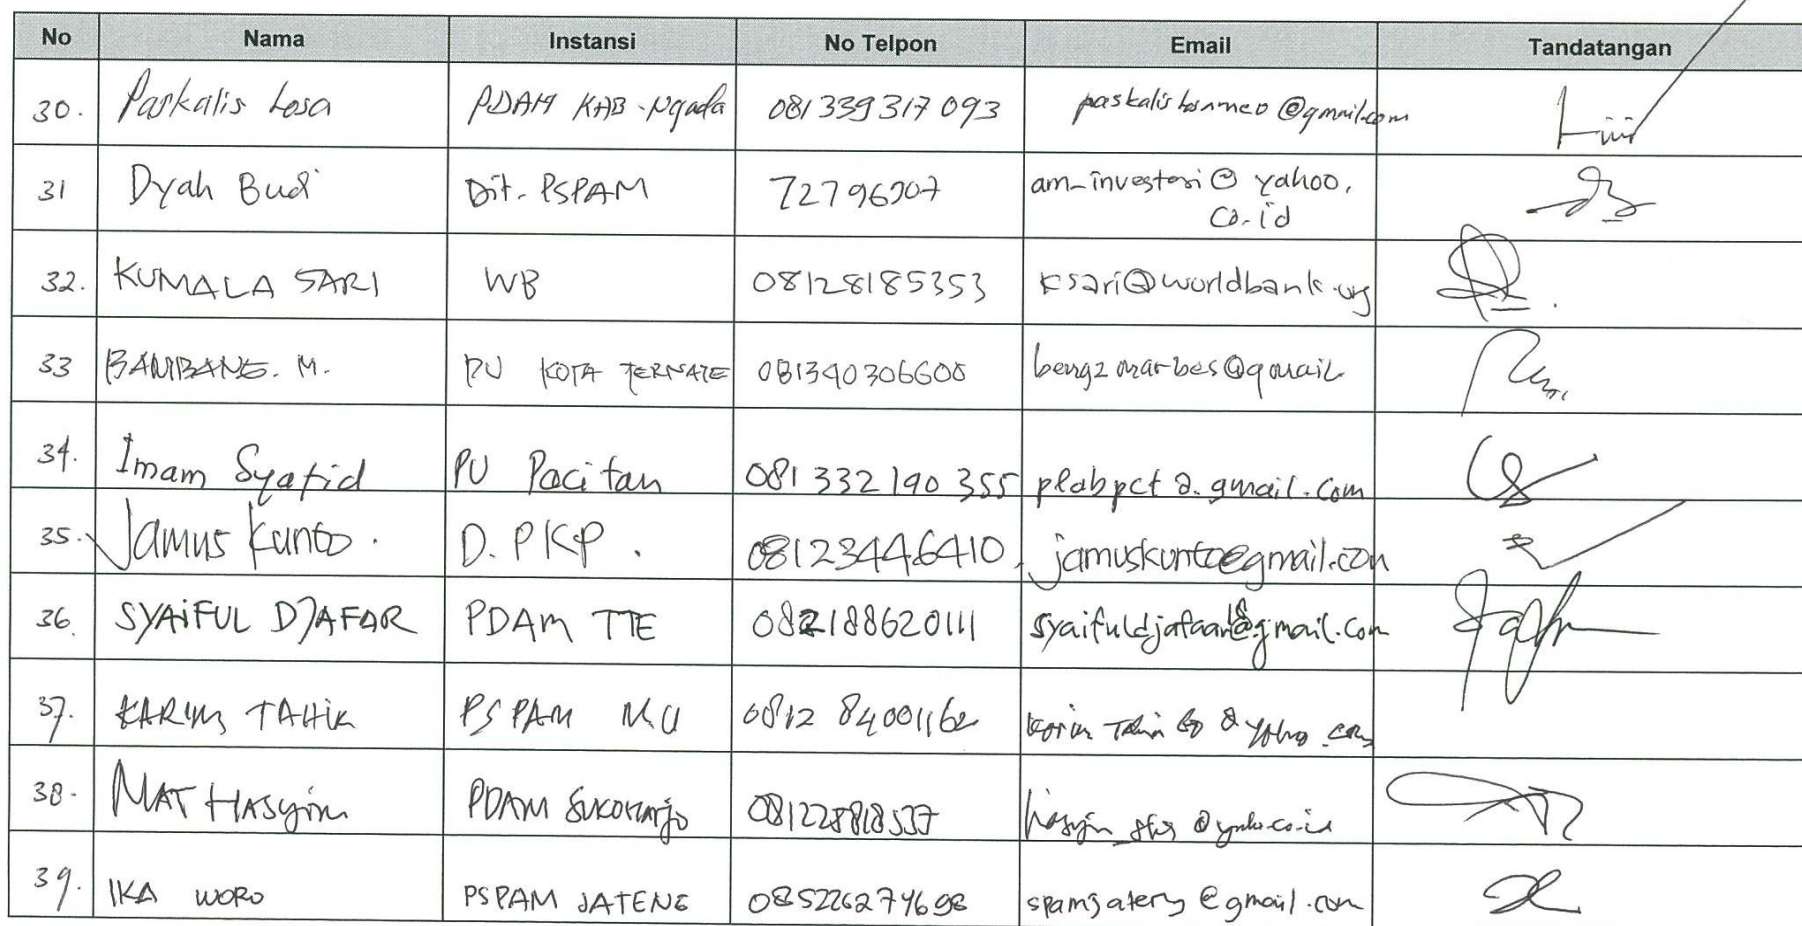 No Nama Instansi No Telpon Email Tandatangan
30. Paskalis Losa PDAM KAB. Ngada 081339317093
31 Dyah Budi Dit. PSPAM 72796907 am_investasi@yahoo.
co.id
32. KUMALA SARI WB 08128185353 ksari@worldbank.org
33 BAMBANG. M. PU KOTA TERNATE 081340306600
34. Imam Syafid PU Pacitan 081 332 190 355 plabpct @. gmail.com
35. Jamus Kunto. D. PKP. 08123446410. jamuskunto@gmail.com
36. SYAiFUL DJAFAR PDAM TTE 082188620111 syaifuldjafaar@gmail.com
37. KARIM TAHIR PSPAM MU
38. MAT HASyim PDAM SUKOHArjo
39. IKA WORO PSPAM JATENG 085226274698